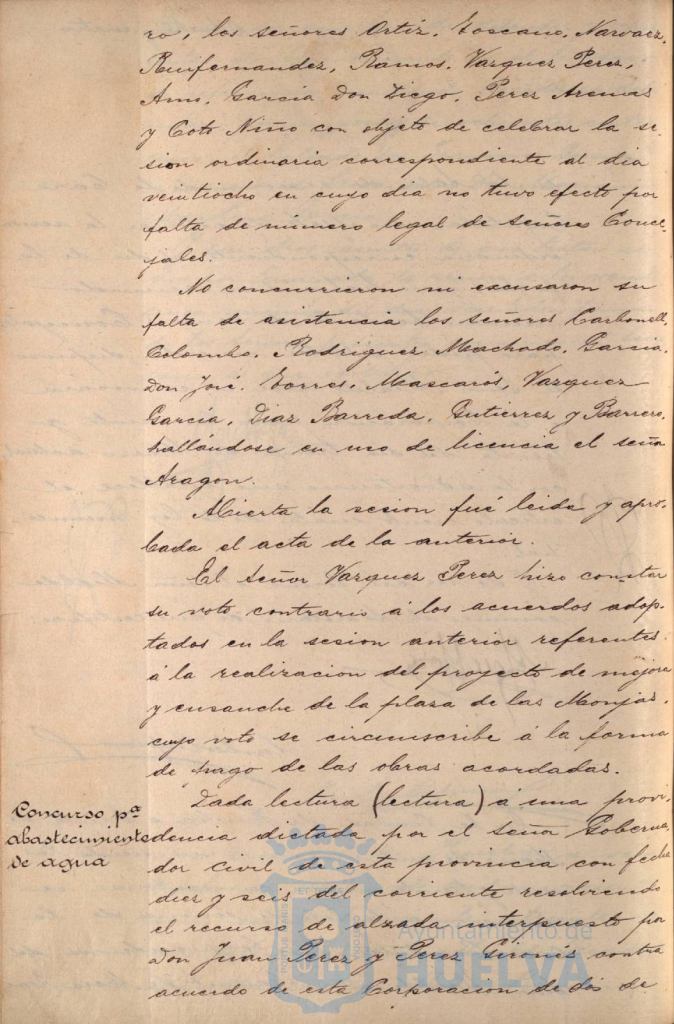 ro, los señores Ortiz, Toscano, Narvaez,
Ruifernandez, Ramos, Vazquez Perez,
Amo, García Don Diego, Perez Arenas
y Coto Niño con objeto de celebrar la se-
sion ordinaria correspondiente al dia
veintiocho en cuyo dia no tuvo efecto por
falta de número legal de señores Conce-
jales.
No concurrieron ni excusaron su
falta de asistencia los señores Carbonell,
Colombo, Rodriguez Machado, García,
Don José, Torres, Mascarós, Vazquez
García, Diaz Barreda, Gutierrez y Barrero,
hallándose en uso de licencia el señor
Aragon.
Abierta la sesion fué leida y apro-
bada el acta de la anterior.
El Señor Vazquez Perez hizo constar
su voto contrario á los acuerdos adop-
tados en la sesion anterior referentes
á la realizacion del proyecto de mejora
y ensanche de la plaza de las Monjas,
cuyo voto se circunscribe á la forma
de pago de las obras acordadas.
Concurso pª
abastecimiento
de agua
Dada lectura (lectura) á una provi-
dencia dictada por el señor Goberna-
dor Civil de esta provincia con fecha
diez y seis del corriente resolviendo
el recurso de alzada interpuesto por
Don Juan Perez y Perez Gironés contra
acuerdo de esta Corporacion de dos de
Ayuntamiento de
HUELVA